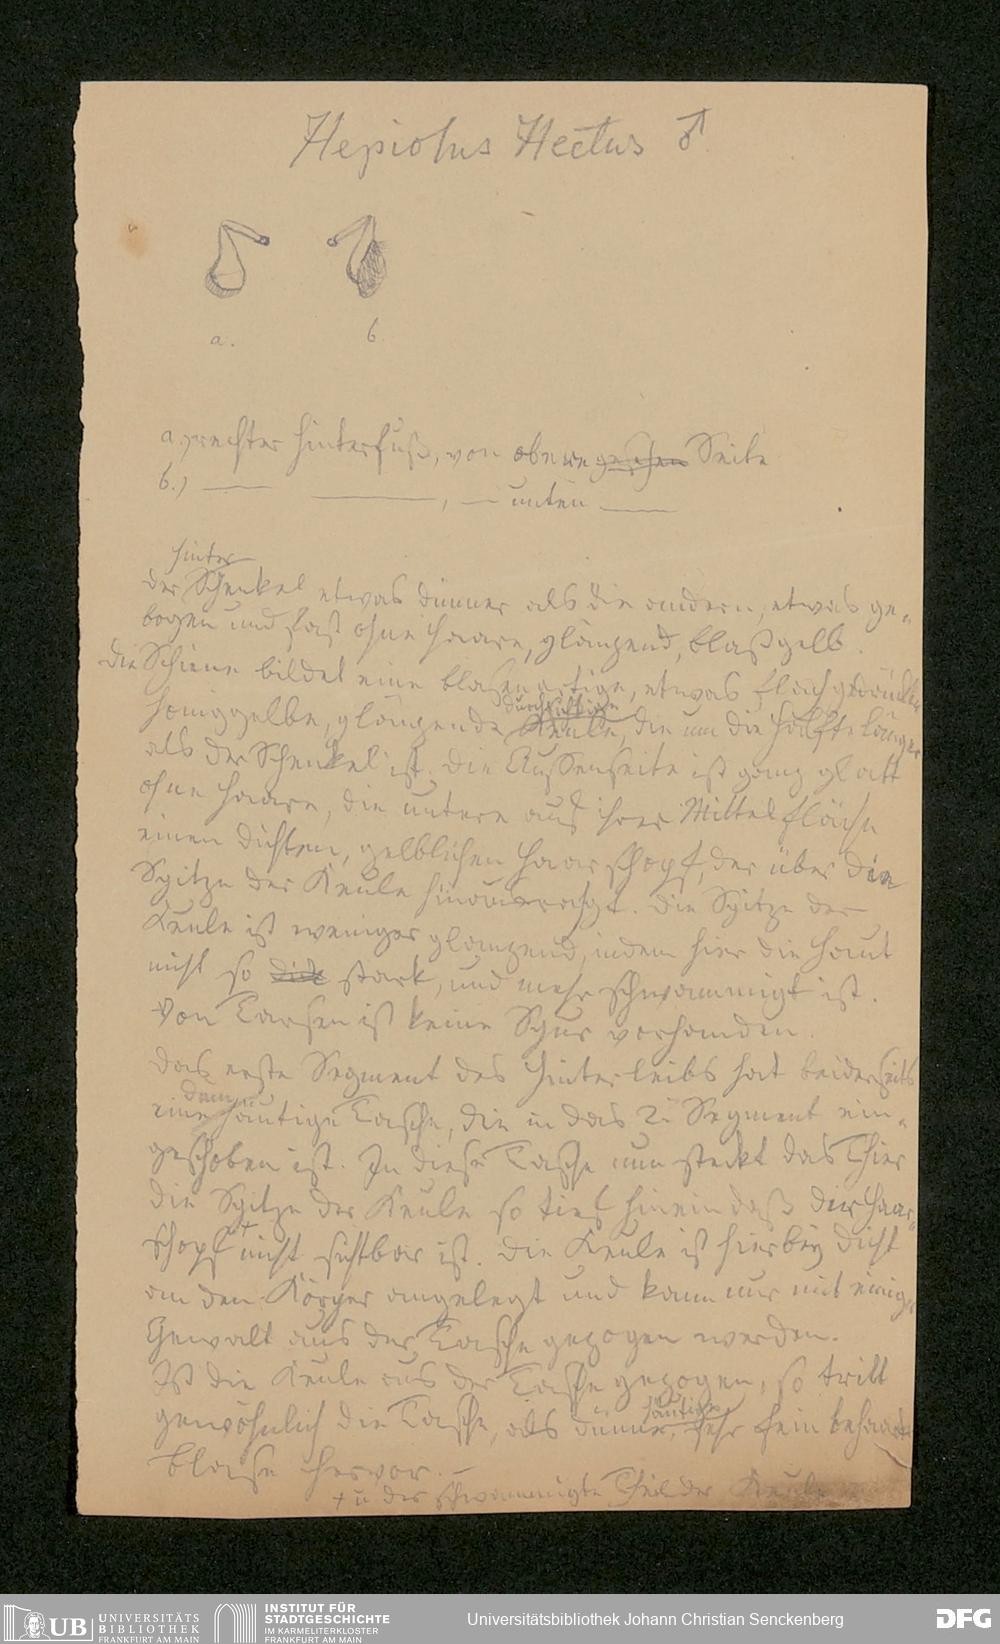 Hepiolus Hectus ♂
a. b.
a.) rechter Hinterfuß, von oberer gesehen Seite
b.) — —, — unten —
Hinter
der Schenkel etwas dünner als die andern, etwas ge-
bogen und fast ohne Haare, glänzend, blaßgelb.
die Schiene bildet eine blasenartige, etwas flach gedrückte
durchsichtige
honiggelbe, glänzende Keule, die um die Hälfte länger
als der Schenkel ist. Die Aussenseite ist ganz glatt
ohne Haare, die untere aus ihrer Mittelfläche
einen dichten, gelblichen Haarschopf, der über die
Spitze der Keule hinausragt. Die Spitze der
Keule ist weniger glänzend, indem hier die Haut
nicht so dick stark, und mehr schwammigt ist.
Von Tarsen ist keine Spur vorhanden.
Das erste Segment des Hinterleibs hat beiderseits
eine häutige Tasche, die in das 2. Segment ein-
geschoben ist. In diese Tasche nun steckt das Thier
die Spitze der Keule so tief hinein daß der Haar-
schopf + nicht sichtbar ist. Die Keule ist hierbey dicht
an den Körper angelegt und kann nur mit einig
Gewalt aus der Tasche gezogen werden.
Ist die Keule aus der Tasche gezogen, so tritt
häutige
gewöhnlich die Tasche, als dünne, sehr fein behaarte
Blase hervor. —
+ u der schwammigte Theil der Keule
UB UNIVERSITÄTS
BIBLIOTHEK
FRANKFURT AM MAIN
INSTITUT FÜR
STADTGESCHICHTE
IM KARMELITERKLOSTER
FRANKFURT AM MAIN
Universitätsbibliothek Johann Christian Senckenberg
DFG